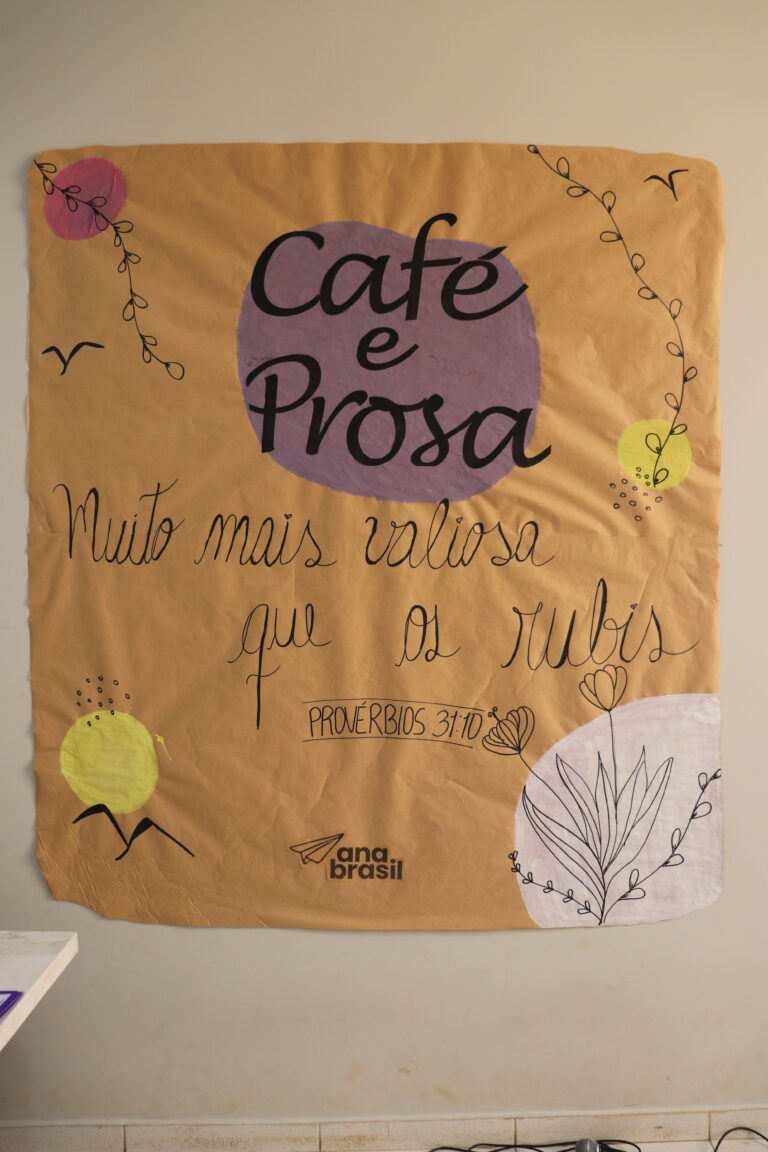 Café
e
Prosa
Muito mais valiosa
que os rubis
PROVÉRBIOS 31:10
ana
brasil